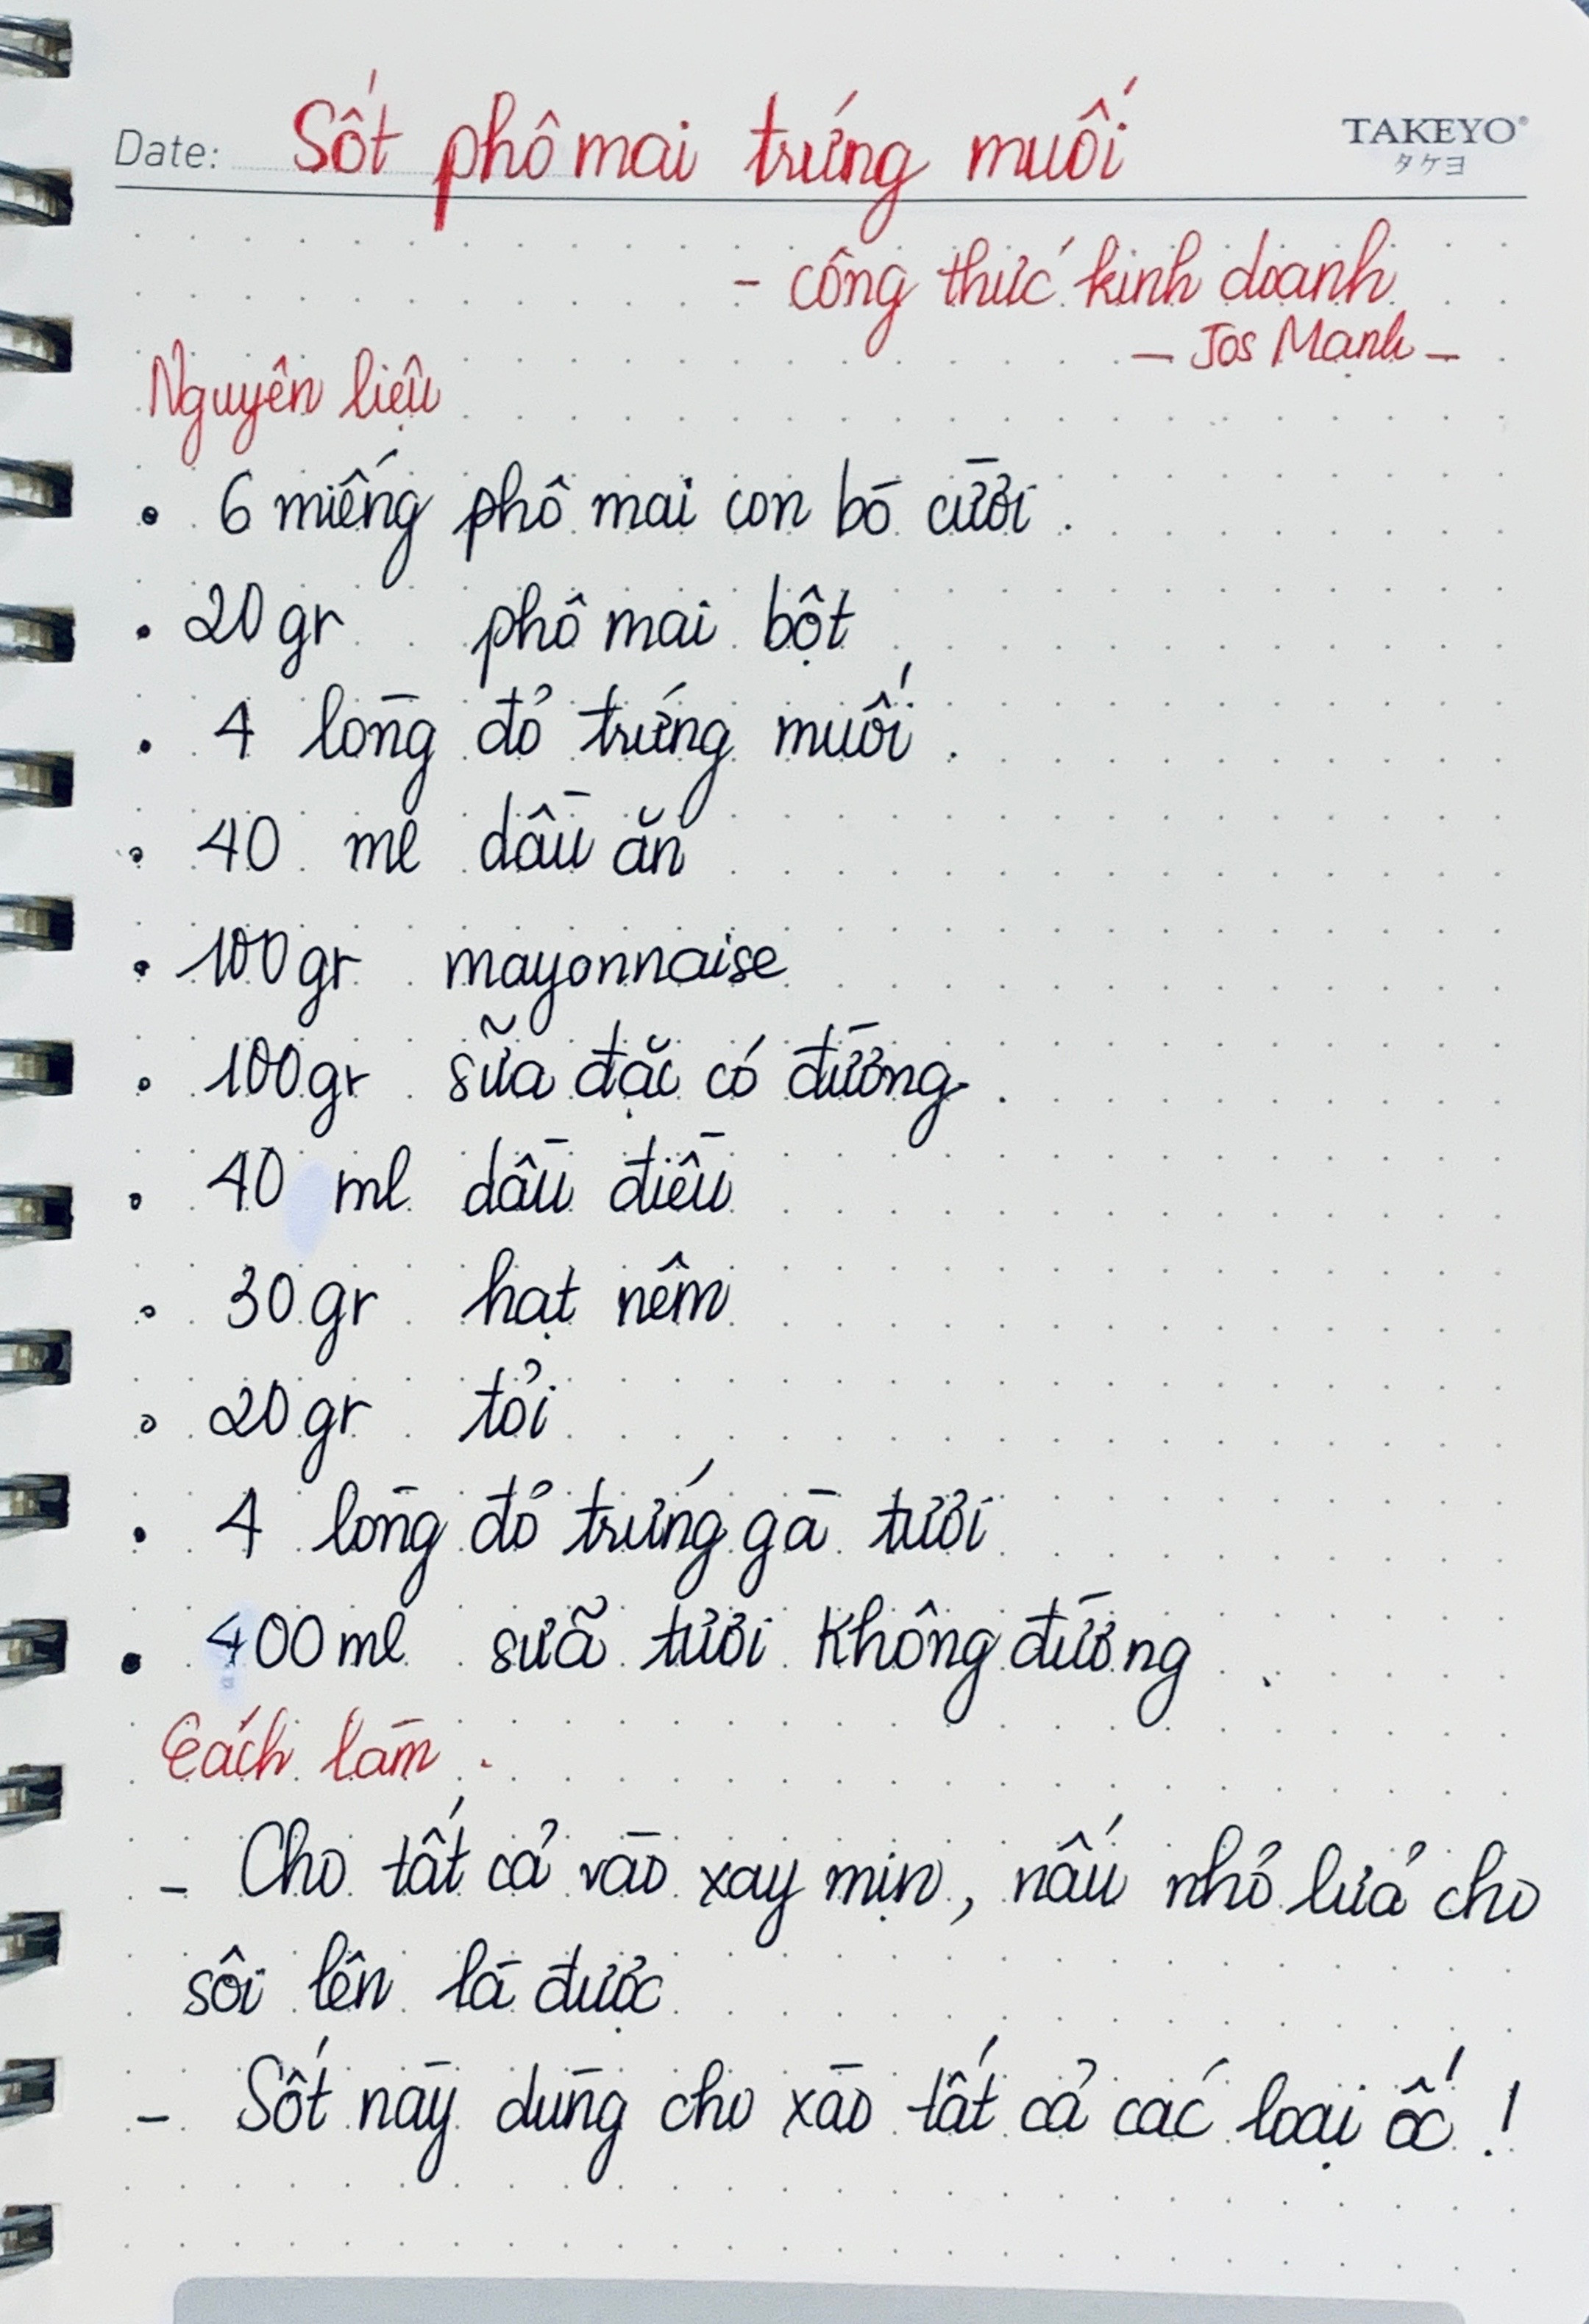 Date: Sốt phô mai trứng muối
TAKEYO®
タケヨ
- công thức kinh doanh
- Jos Mạnh -
Nguyên liệu
• 6 miếng phô mai con bò cười.
• 20gr phô mai bột
• 4 lòng đỏ trứng muối.
• 40 ml dầu ăn
• 100gr mayonnaise
• 100gr sữa đặc có đường.
• 40 ml dầu điều
• 30gr hạt nêm
• 20gr tỏi
• 4 lòng đỏ trứng gà tươi
• 400ml sữa tươi không đường.
Cách làm.
- Cho tất cả vào xay mịn, nấu nhỏ lửa cho
sôi lên là được
- Sốt này dùng cho xào tất cả các loại ốc!